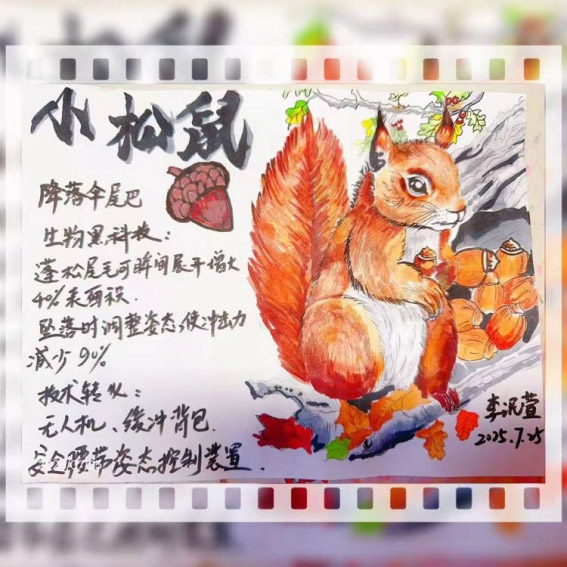 小松鼠
降落伞尾巴
生物黑科技：
蓬松尾毛可瞬间展开增大
40%表面积.
坠落时调整姿态,使冲击力
减少90%
技术转化：
无人机、缓冲背包.
安全腰带姿态控制装置.
李泯萱
2025.7.25